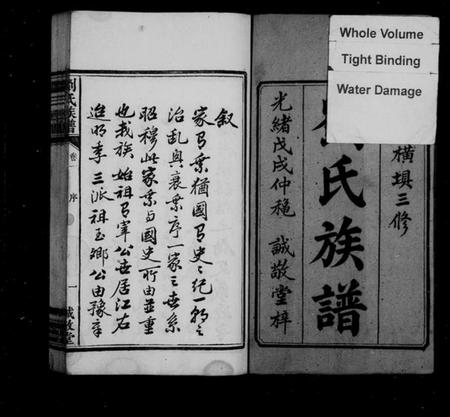 Whole Volume
Tight Binding
Water Damage
橫塤三修
氏族譜
光緒戊戌仲穐 誠敬堂梓
敘
家乘猶國史
治亂與衰乘序一家之世系
昭穆此家乘与國史所由並重
也我族始祖公世居江右
迨明季三派祖玉鄉公由豫章
劉氏族譜
卷一 序 一 誠敬堂